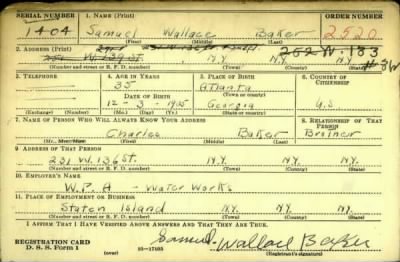 SERIAL NUMBER 1. NAME (Print) ORDER NUMBER
1404 Samuel Wallace Baker 2520
(First) (Middle) (Last)
2. ADDRESS (Print) 252 W. 133
251 W. 139 St. N.Y. N.Y. N.Y. #3W
(Number and street or R. F. D. number) (Town) (County) (State)
3. TELEPHONE 4. AGE IN YEARS 5. PLACE OF BIRTH 6. COUNTRY OF CITIZENSHIP
35 Atlanta
DATE OF BIRTH (Town or county)
12-3-1905 Georgia U.S
(Exchange) (Number) (Mo.) (Day) (Yr.) (State or country)
7. NAME OF PERSON WHO WILL ALWAYS KNOW YOUR ADDRESS 8. RELATIONSHIP OF THAT PERSON
Charles Baker Brother
(Mr., Mrs., Miss) (First) (Middle) (Last)
9. ADDRESS OF THAT PERSON
231 W. 136 St. N.Y. N.Y. N.Y.
(Number and street or R. F. D. number) (Town) (County) (State)
10. EMPLOYER'S NAME
W.P.A - Water Works
11. PLACE OF EMPLOYMENT OR BUSINESS
Staten Island N.Y. N.Y.
(Number and street or R. F. D. number) (Town) (County) (State)
I AFFIRM THAT I HAVE VERIFIED ABOVE ANSWERS AND THAT THEY ARE TRUE.
REGISTRATION CARD Samuel Wallace Baker
D. S. S. Form 1 (over) 16-17105 (Registrant's signature)